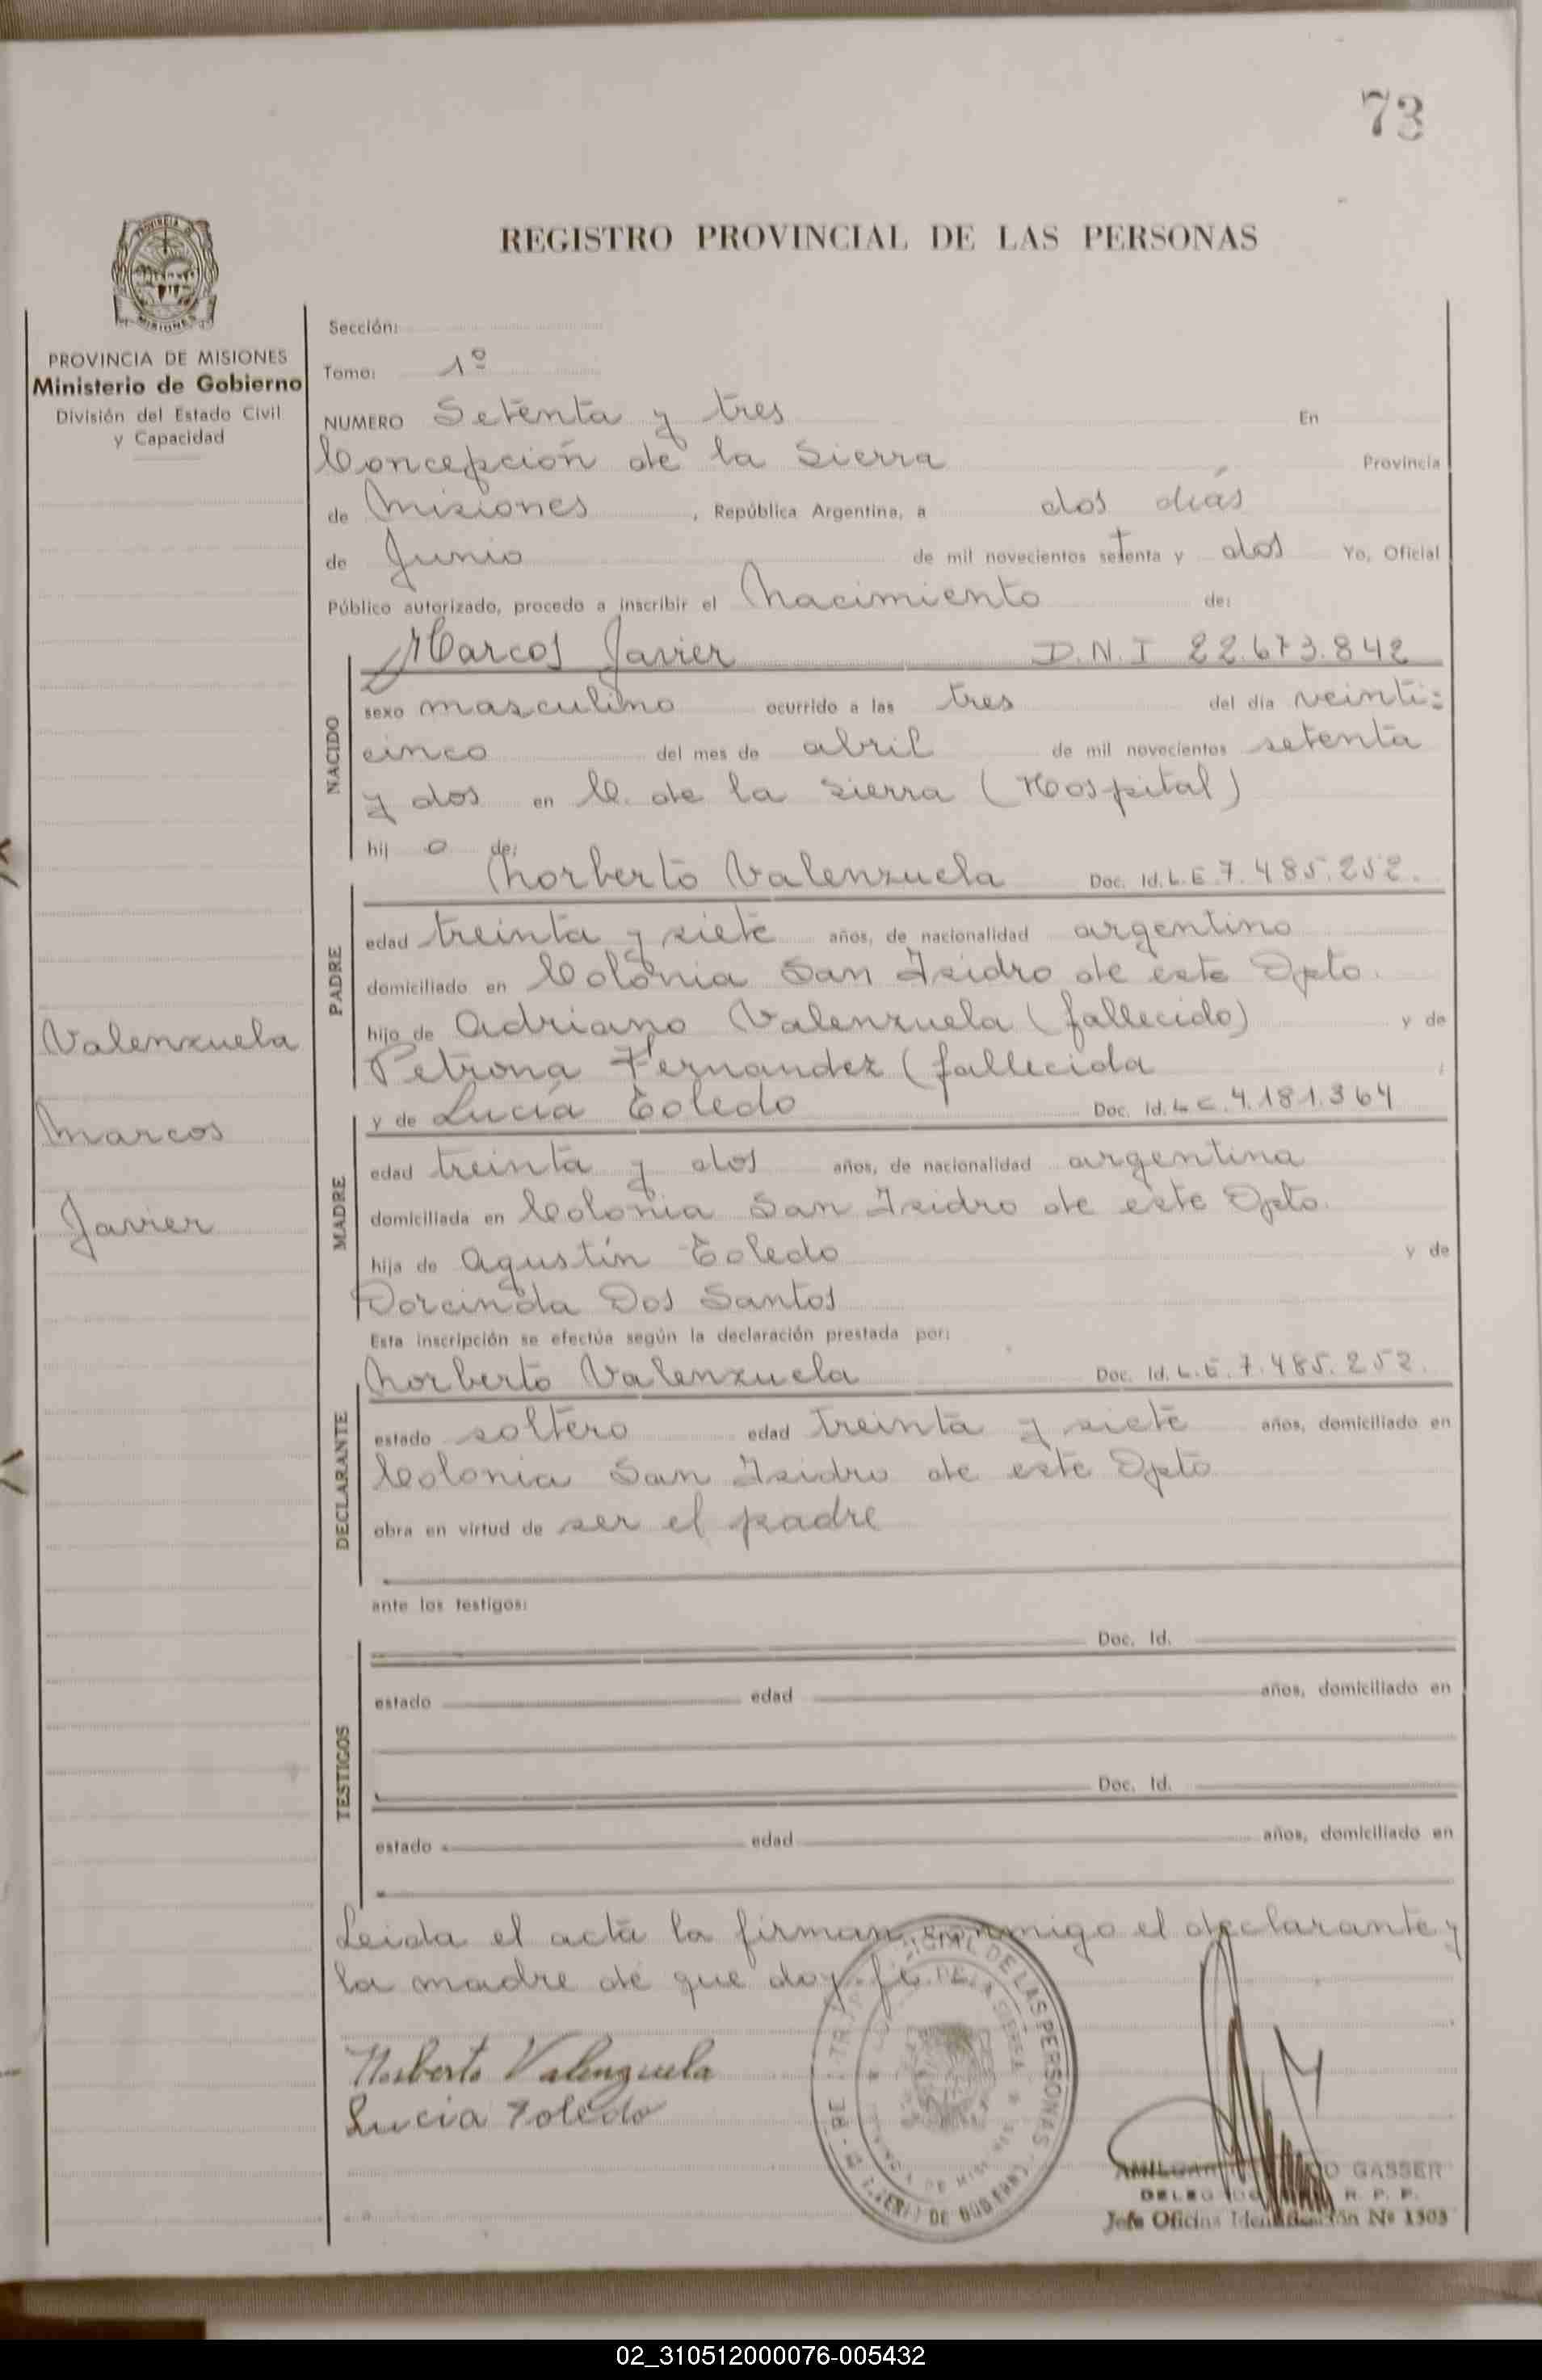 73
REGISTRO PROVINCIAL DE LAS PERSONAS
PROVINCIA DE MISIONES
Ministerio de Gobierno
División del Estado Civil
y Capacidad
Valenzuela
Marcos
Javier
Sección:
Tomo: 1º
NUMERO Setenta y tres En
Concepción de la Sierra Provincia
de Misiones, República Argentina, a dos días
de Junio de mil novecientos setenta y dos Yo, Oficial
Público autorizado, procedo a inscribir el Nacimiento de:
NACIDO
Marcos Javier D.N.I 22.673.842
sexo masculino ocurrido a las tres del día veinti=
cinco del mes de abril de mil novecientos setenta
y dos en C. de la Sierra (Hospital)
hij o de:
PADRE
Norberto Valenzuela Doc. Id. L.E. 7.485.252.
edad treinta y siete años, de nacionalidad argentino
domiciliado en Colonia San Isidro de este Dpto.
hijo de Adriano Valenzuela (fallecido) y de
Petrona Fernandez (fallecida
MADRE
y de Lucía Toledo Doc. Id. L C. 4.181.364
edad treinta y dos años, de nacionalidad argentina
domiciliada en Colonia San Isidro de este Dpto.
hija de Agustín Toledo y de
Dorcinda Dos Santos
Esta inscripción se efectúa según la declaración prestada por:
DECLARANTE
Norberto Valenzuela Doc. Id. L.E. 7.485.252.
estado soltero edad treinta y siete años, domiciliado en
Colonia San Isidro de este Dpto
obra en virtud de ser el padre
ante los testigos:
TESTIGOS
Doc. Id.
estado edad años, domiciliado en
Doc. Id.
estado edad años, domiciliado en
Leida el acta la firman conmigo el declarante y
la madre de que doy fe.
Norberto Valenzuela
Lucia Toledo
DE LAS PERSONAS
DE LA SIERRA
DE GOBIERNO
GASSER
R. P. P.
Jefe Oficina Identificación Nº 1303
02_310512000076-005432